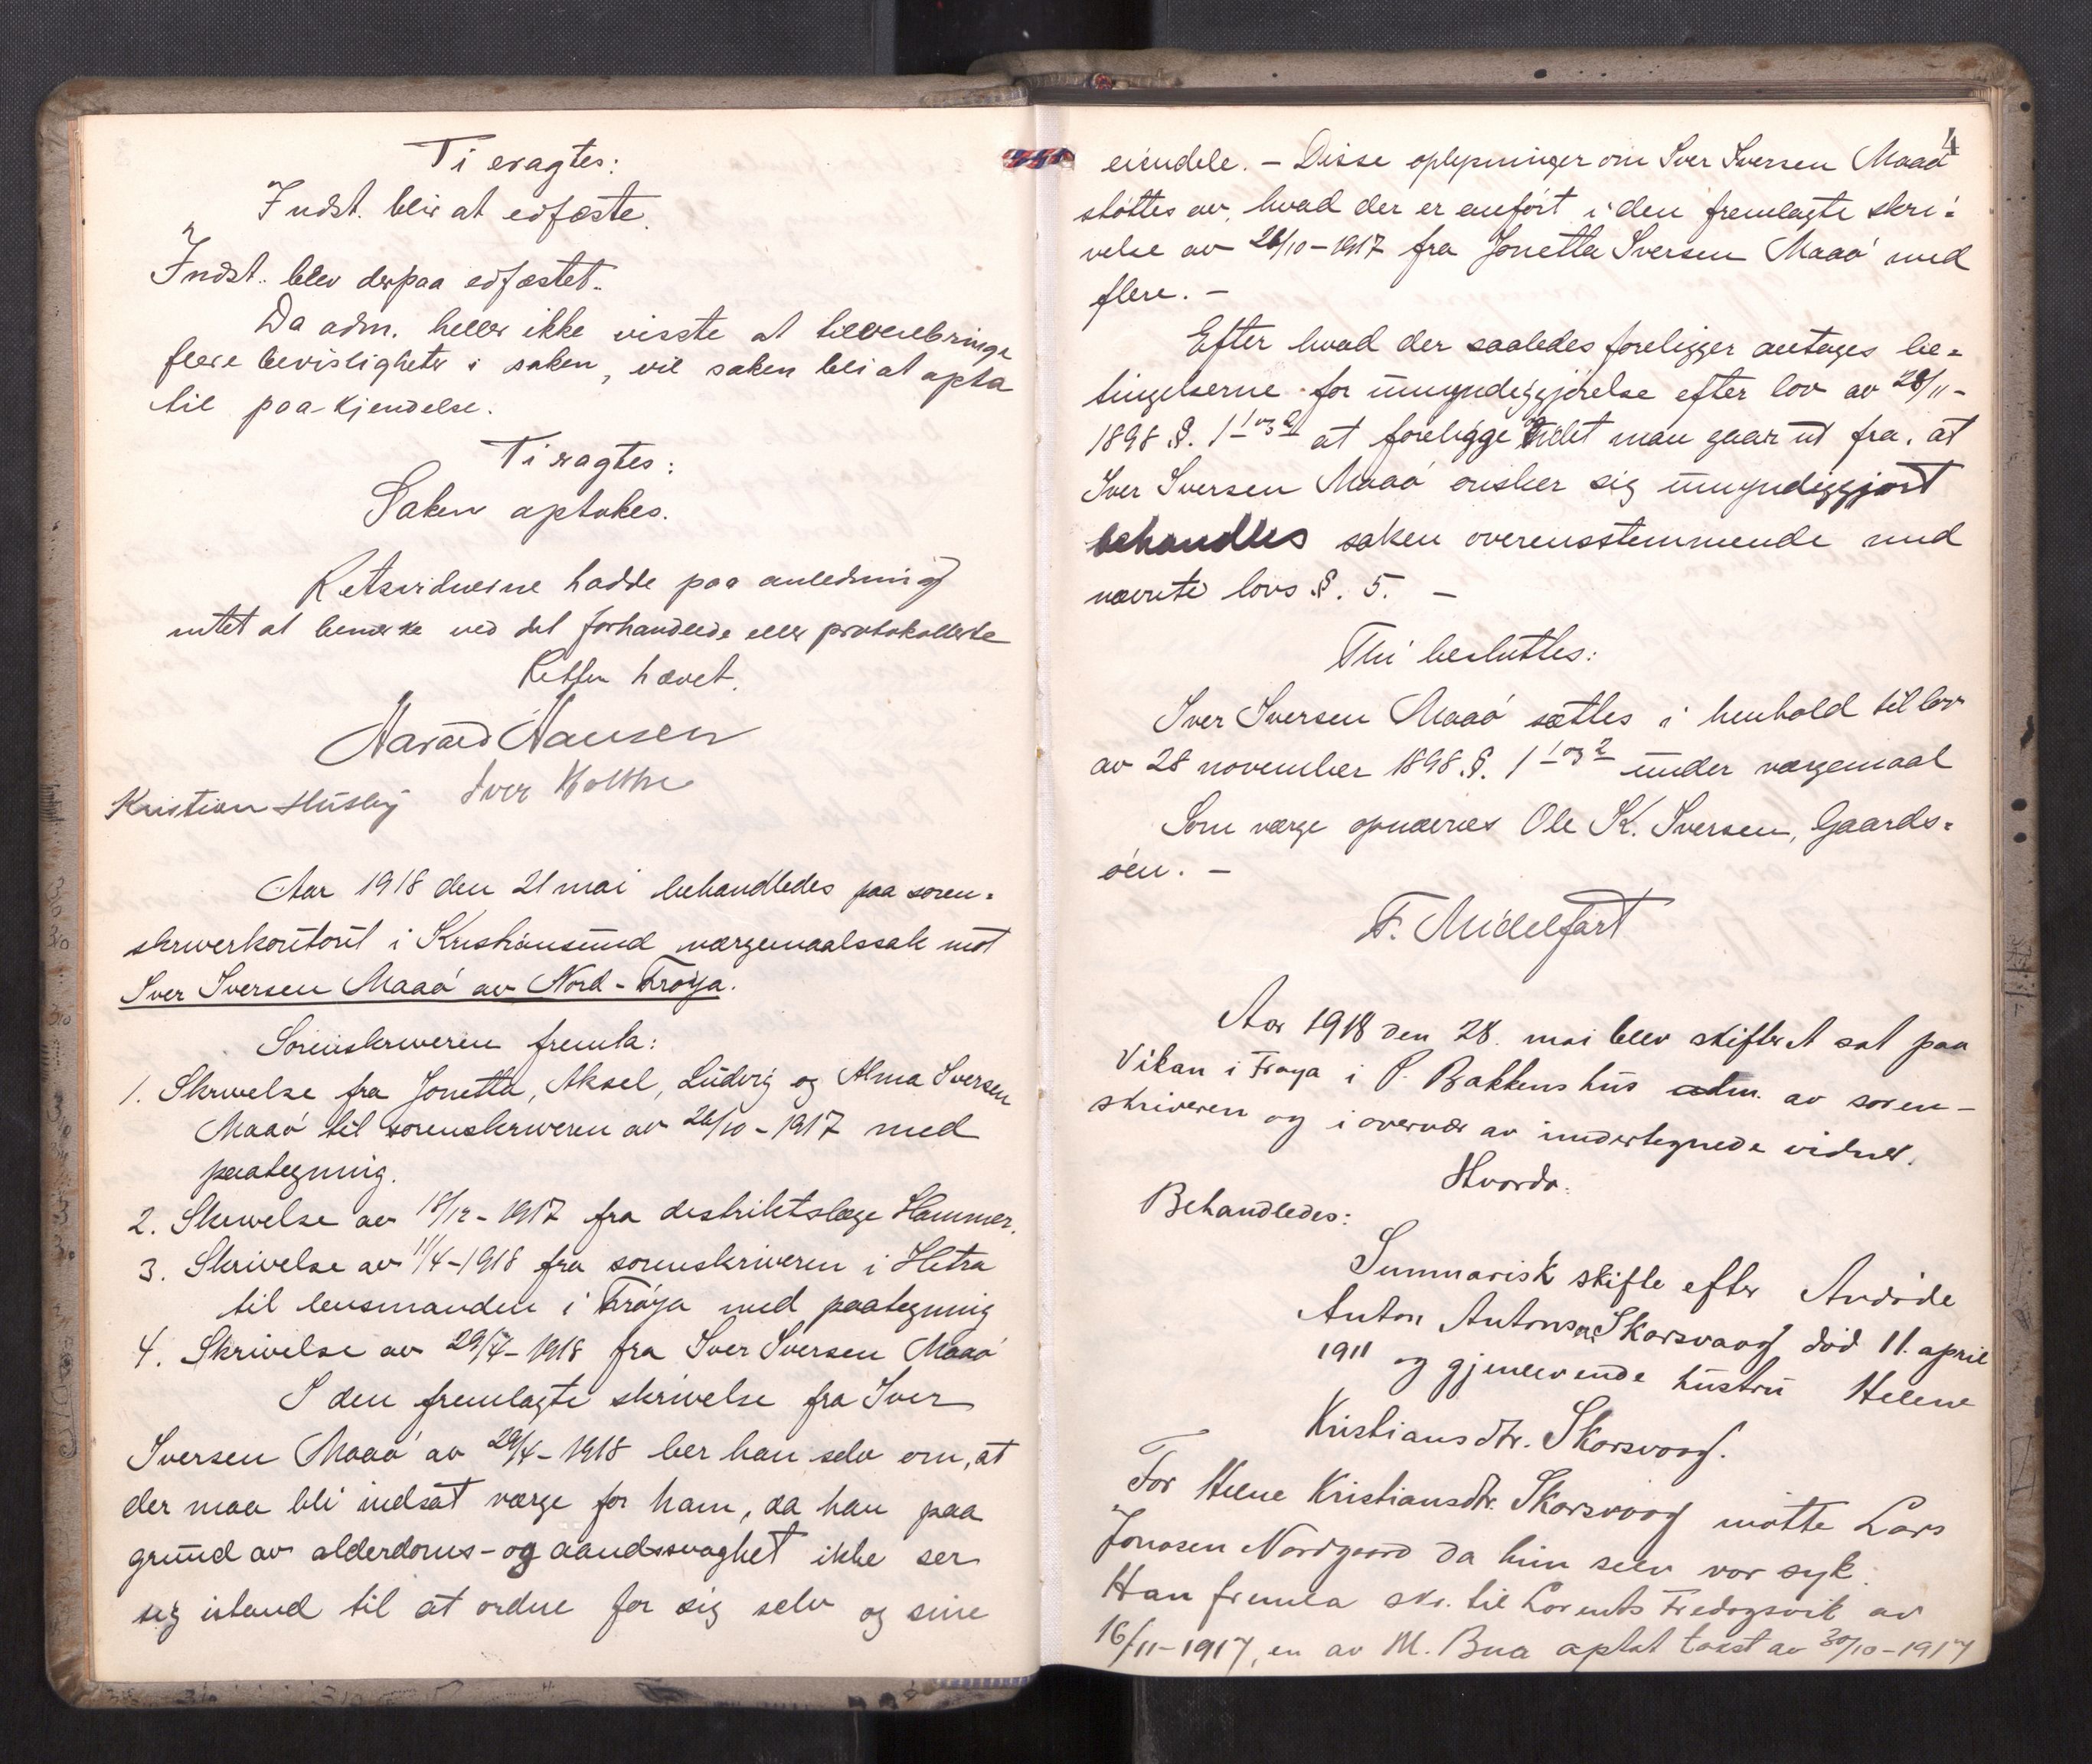 Ti eragtes:
Indst. blir at edfæste.
Indst. blev derpaa edfæstet.
Da adm. heller ikke visste at tilveiebringe
flere bevisligheter i saken, vil saken bli at opta
til paakjendelse.
Ti eragtes:
Saken optokes.
Retsvidnerne hadde paa anledning
intet at bemerke ved det forhandlede eller protokollerte
Retten hævet.
Harald Hansen
Kristian Husby Iver Holthe
Aar 1918 den 21 mai behandledes paa soren-
skriverkontoret i Kristiansund værgemaalssak mot
Iver Iversen Maaö av Nord-Fröya.
Sorenskriveren fremla:
1. Skrivelse fra Jonetta, Aksel, Ludvig og Alma Iversen
Maaö til sorenskriveren av 26/10-1917 med
paategning.
2. Skrivelse av 18/12-1917 fra distriktslæge Hammer.
3. Skrivelse av 11/4-1918 fra sorenskriveren i Hitra
til lensmanden i Fröya med paategning
4. Skrivelse av 29/4-1918 fra Iver Iversen Maaö
I den fremlagte skrivelse fra Iver
Iversen Maaö av 29/4-1918 ber han selv om, at
der maa bli indsat værge for ham, da han paa
grund av alderdoms- og aandssvaghet ikke ser
sig istand til at ordne for sig selv og sine
4
eiendele. - Disse oplysninger om Iver Iversen Maaö
støttes av, hvad der er anført i den fremlagte skri-
velse av 26/10-1917 fra Jonetta Iversen Maaö med
flere. -
Efter hvad der saaledes foreligger antages be-
tingelserne for umyndiggjørelse efter lov av 28/11-
1898 §. 1 1 og 2 at foreligge. Idet man gaar ut fra, at
Iver Iversen Maaö ønsker sig umyndiggjort
behandles saken overensstemmende med
nævnte lovs §. 5. -
Thi besluttes:
Iver Iversen Maaö sættes i henhold til lov
av 28 november 1898 §. 1 1 og 2 under værgemaal
Som værge opnævnes Ole K. Iversen, Gaards-
öen. -
F. Midelfart
Aar 1918 den 28. mai blev skifteret sat paa
Vikan i Fröya i P. Bakkens hus adm. av soren-
skriveren og i overvær av undertegnede vidner.
Hvorda:
Behandledes:
Summarisk skifte efter Avdöde
Anton Antonsen Skarsvaag död 11. april
1911 og gjenlevende hustru Helene
Kristiansdtr. Skarsvaag.
For Helene Kristiansdtr. Skarsvaag mötte Lars
Jonasen Nordgaard da hun selv var syk.
Han fremla skr. til Lorents Fredagsvik av
16/11-1917, en av M. Bua optat takst av 30/10-1917